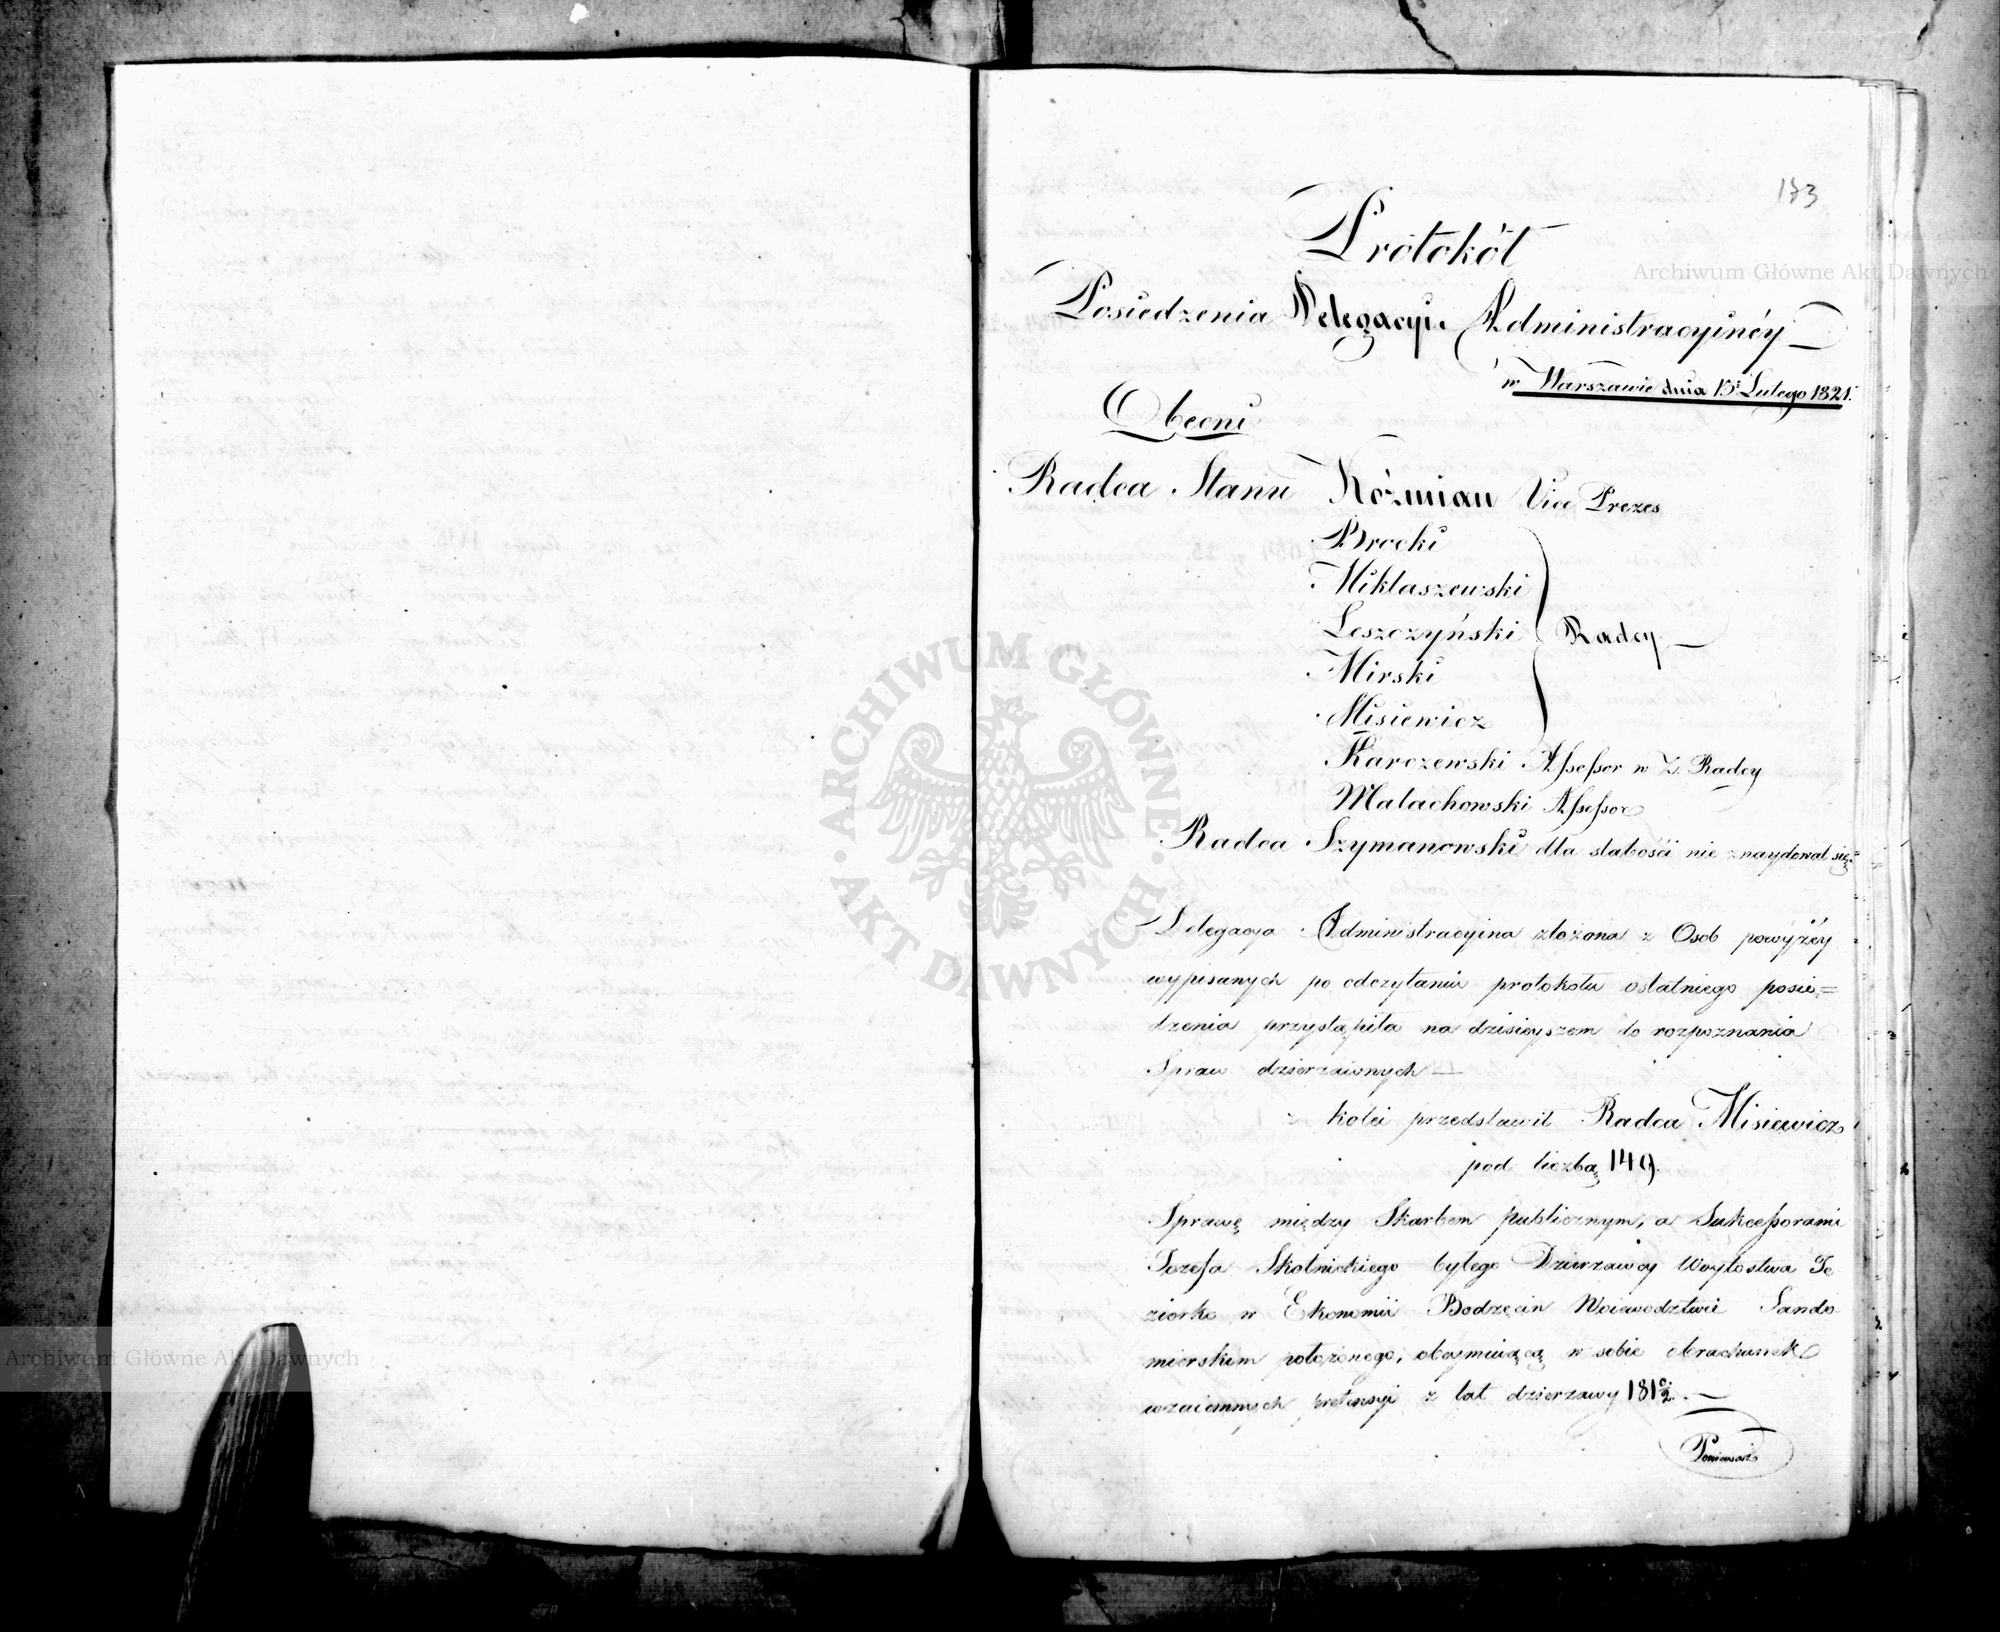 183
Protokół
Posiedzenia Delegacyi Administracyinéy
w Warszawie dnia 15 Lutego 1821.
Obecni
Radca Stanu Koźmian Vice Prezes
Brocki
Miklaszewski
Leszczyński
Mirski
Misiewicz
Radcy
Karczewski Assessor w Z. Radcy
Małachowski Assessor
Radca Szymanowski dla słabości nie znaydował się
Delegacya Administracyina złożona z Osob powyżéy
wypisanych po odczytaniu protokołu ostatniego posie=
dzenia przystąpiła na dzisieyszem do rozpoznania
Spraw dzierzawnych —
z kolei przedstawił Radca Misiewicz
pod liczbą 149.
Sprawę między Skarbem publicznym, a Sukcessorami
Jozefa Skolnickiego byłego Dzierzawcy Woytostwa Je
ziorko w Ekonomii Bodzęcin Woiewodztwie Sando
mierskim położonego, obeymuiącą w sobie obrachunek
wzaiemnych pretensyi z lat dzierzawy 181 0/2. —
Ponieważ
Archiwum Główne Akt Dawnych
ARCHIWUM GŁÓWNE AKT DAWNYCH
Archiwum Główne Akt Dawnych